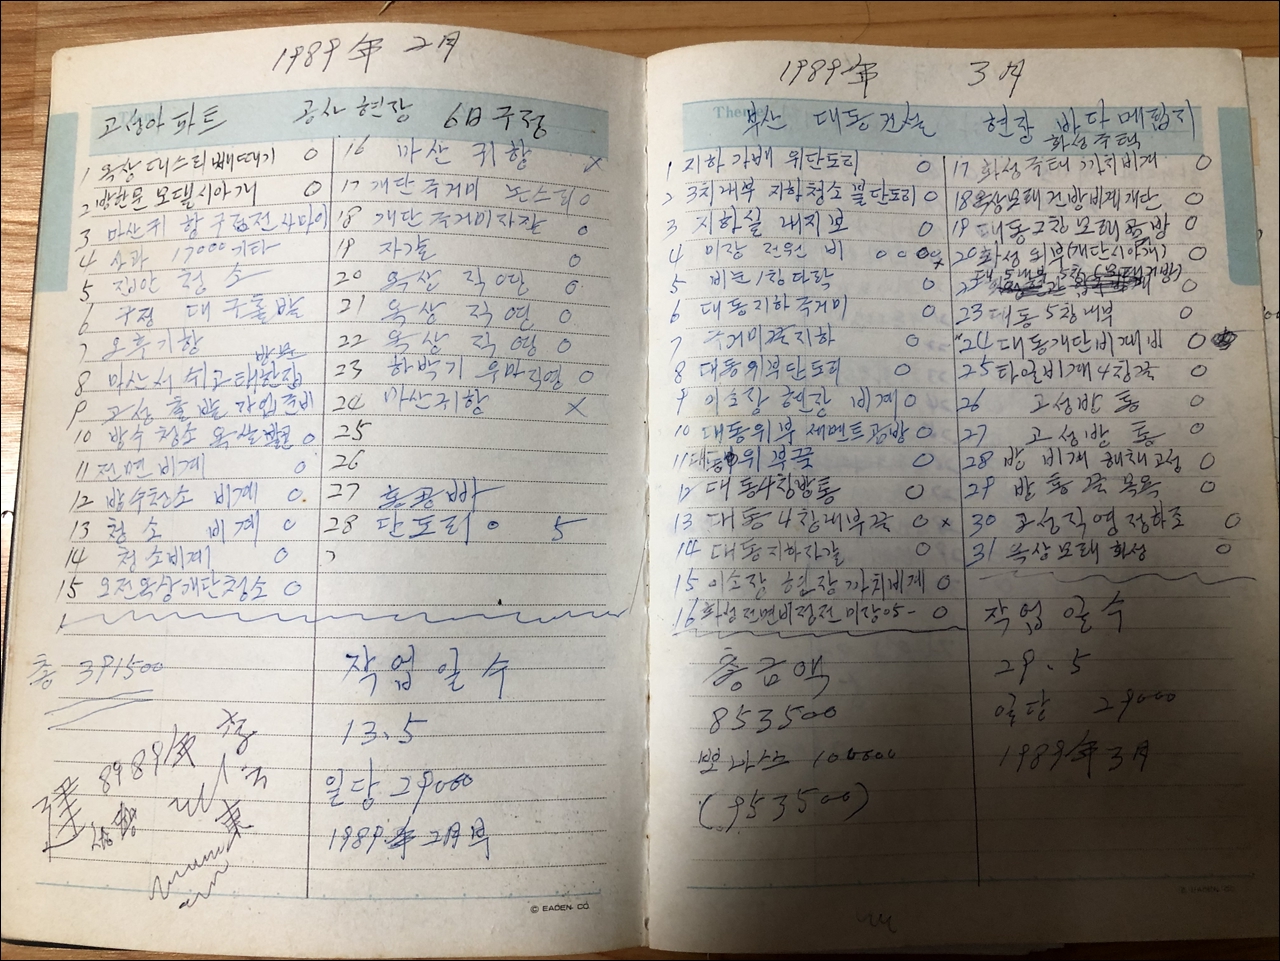 1989年 2月
고성아파트 공사현장 6日구정
1 옥상 대스리빼때기 0
2 방한문 모델시아개 0
3 마산귀향 구림전사마이
4 사과 17000 기타
5 집안 청소
6 구정 대구출발
7 오후기항
방문
8 마산서 쉬고 태환집
9 고성 출발 작업준비
10 방수청소 옥상 0
11 전면비계 0
12 방수청소 비계 0.
13 청소 비계 0
14 청소비계 0
15 오전옥상개단청소 0
총 391500
16 마산귀향 x
17 개단죽거미 돈스리0
18 개단죽거미자갈 0
19 자갈 0
20 옥상직영 0
21 옥상직영 0
22 옥상직영 0
23 하박기 우마직영 0
24 마산귀향 X
25
26
27 홍콩빠
28 단도리 0 5
작업일수
13.5
일당 29000
1989年 2月부
8989年
達
東
© EADEN. CO.
1989年 3月
부산 대동건설 현장 바다매립지
화성주택
1 지하가배 위단도리 0
2 3치내부 지항청소 불단도리 0
3 지하실 래지보 0
4 미장 전원 비 0 0 0 0x
5 비논1창다락 0
6 대동지하죽거미 0
7 죽거미끝지하 0
8 대동위부단도리 0
9 이소장 현장 비계 0
10 대동위부 세멘트곰방 0
11 대동위부끝 0
12 대동4창방통 0
13 대동4창내부끝 0 x
14 대동지하자갈 0
15 이소장 현장 까치비계 0
16 화성전면비점전 미장05- 0
총금액
853500
뽀나스 100000
(953500)
17 화성주택 까치비계 0
18 옥상모래 건방비계개단 0
19 대동2창모래곰방 0
20 화성외부(개단시아개) 0
23 대동5창내부 0
24 대동개단비계비 0
25 타일비계4창끝 0
26 고성방통 0
27 고성방통 0
28 방 비계 해체고성 0
29 방통끝 목욕 0
30 고성직영정화조 0
31 옥상모래화성 0
작업일수
29.5
일당 29000
1989年 3月
© EADEN. CO.